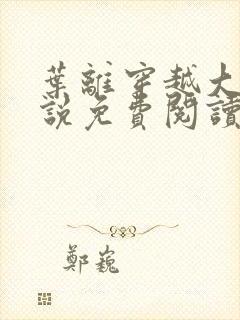 葉離穿越大
說免費閱讀
鄭巍